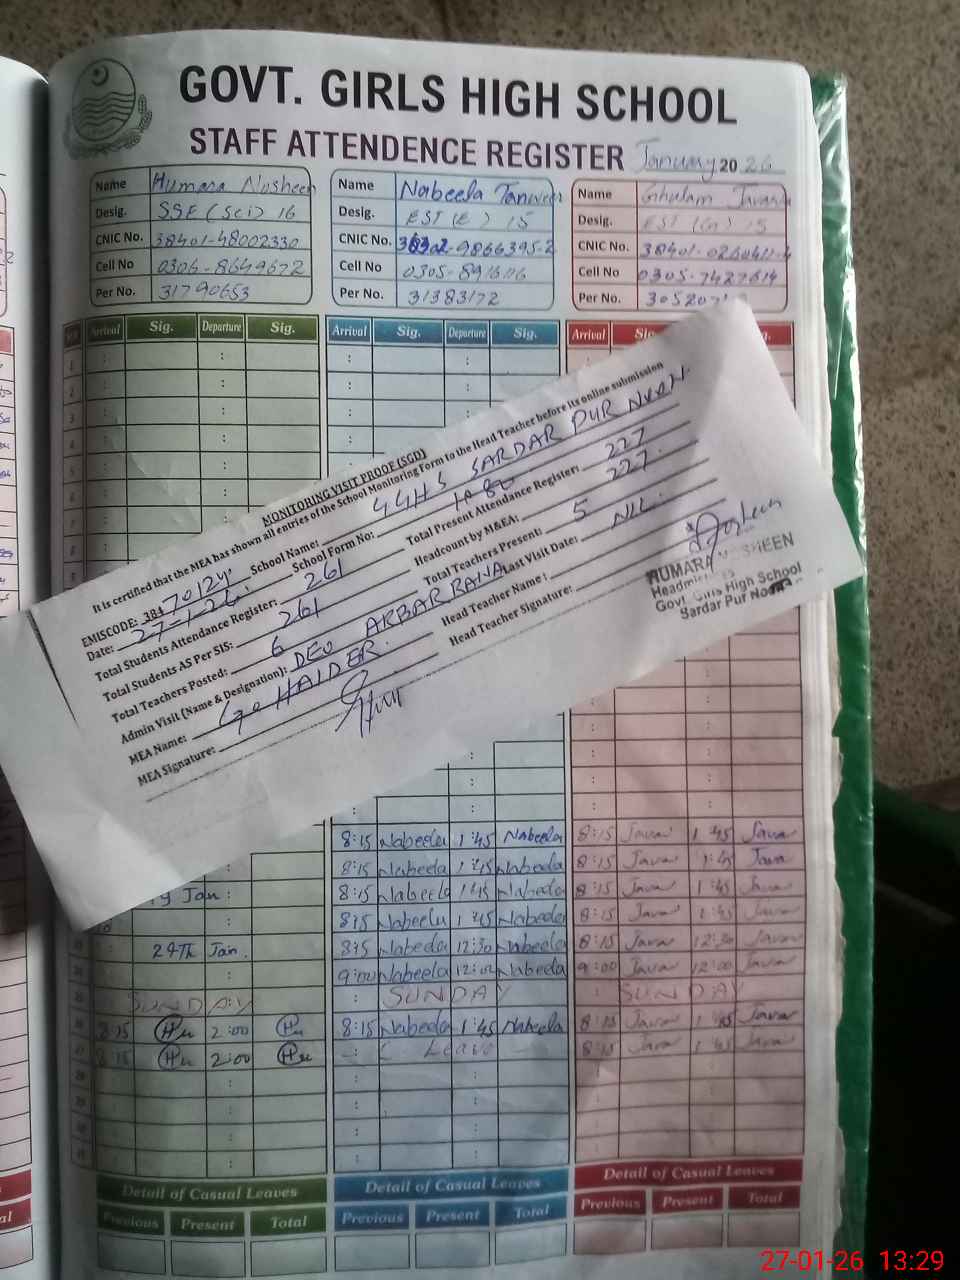 GOVT. GIRLS HIGH SCHOOL
STAFF ATTENDENCE REGISTER January 2026
Name Humara Nosheen
Desig. SSE (Sci) 16
CNIC No. 38401-48002330
Cell No 0306-8649672
Per No. 31790653
Name Nabeela Tanveer
Desig. EST (E) 15
CNIC No. -9866395-2
Cell No 0305-
Per No. 31383172
Name Ghulam
Desig. EST (G) 15
CNIC No. 38401-
Cell No 0305-7427614
Per No. 305207
Arrival Sig. Departure Sig.
Arrival Sig. Departure Sig.
Arrival
MONITORING VISIT PROOF (SGD)
It is certified that the MEA has shown all entries of the School Monitoring Form to the Head Teacher before its online submission
EMISCODE: 384 70124 School Name: GGHS SARDAR PUR NOON
Date: 27-1-26 School Form No:
Total Students Attendance Register: 261 Total Present Attendance Register: 227
Total Students AS Per SIS: 261 Headcount by M&EA: 227
Total Teachers Posted: 6 Total Teachers Present: 5
Admin Visit (Name & Designation): DEO AKBAR RANA Last Visit Date: NIL
MEA Name: HAIDER Head Teacher Name:
MEA Signature: Head Teacher Signature:
HUMARA NOSHEEN
Headmistress
Govt. Girls High School
Sardar Pur Noon
8:15 Nabeela 1:45 Nabeela 8:15 Java 1:45 Java
8:15 Nabeela 1:45 Nabeela 8:15 Java 1:45 Java
Jan: 8:15 Nabeela 1:45 Nabeela 8:15 Java 1:45 Java
8:15 Nabeela 1:45 Nabeela 8:15 Java 1:45 Java
24th Jan. 8:15 Nabeela 12:30 Nabeela 8:15 Java 12:30 Java
9:00 Nabeela 12:00 Nabeela 9:00 Java 12:00 Java
SUNDAY SUNDAY SUNDAY
8:15 Hu 2:00 Hu 8:15 Nabeela 1:45 Nabeela 8:15 Java 1:45 Java
8:15 Hu 2:00 Hu Leave 8:15 Java 1:45 Java
Detail of Casual Leaves Detail of Casual Leaves Detail of Casual Leaves
Previous Present Total Previous Present Total Previous Present Total
27-01-26 13:29